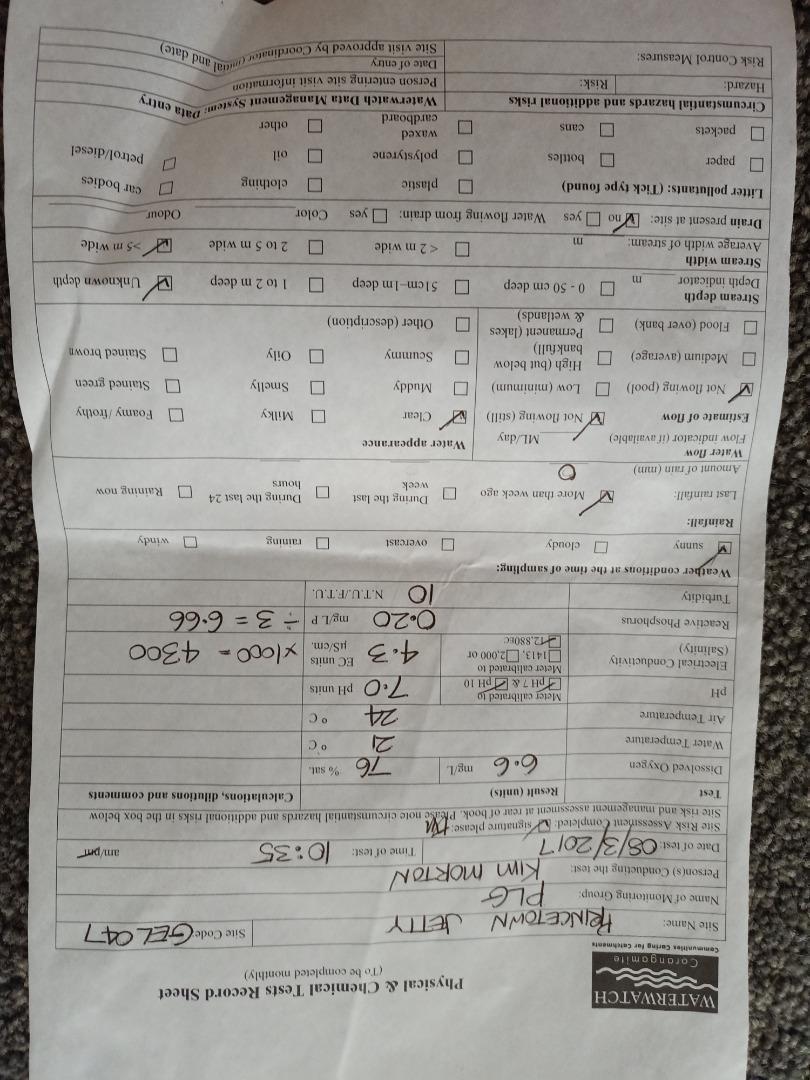 WATERWATCH
Corangamite
Communities Caring for Catchments
Physical & Chemical Tests Record Sheet
(To be completed monthly)
Site Name: PRINCETOWN JETTY Site Code GEL047
Name of Monitoring Group: PLG
Person(s) Conducting the test: KIM MORTON
Date of test: 08/3/2017 Time of test: 10:35 am/pm
Site Risk Assessment Completed: signature please:
Site risk and management assessment at rear of book. Please note circumstantial hazards and additional risks in the box below
Test Result (units) Calculations, dilutions and comments
Dissolved Oxygen 6.6 mg/L 76 % sat.
Water Temperature 21 °C
Air Temperature 24 °C
pH Meter calibrated to pH 7 & pH 10 7.0 pH units
Electrical Conductivity (Salinity) Meter calibrated to 1413, 2,000 or 12,880EC 4.3 EC units µS/cm. x1000 = 4300
Reactive Phosphorus 0.20 mg/L P ÷ 3 = 6.66
Turbidity 10 N.T.U./F.T.U.
Weather conditions at the time of sampling:
sunny cloudy overcast raining windy
Rainfall:
Last rainfall: More than week ago During the last week During the last 24 hours Raining now
Amount of rain (mm) 0
Water flow
Flow indicator (if available) ML/day
Water appearance
Estimate of flow Not flowing (still) Clear Milky Foamy /frothy
Not flowing (pool) Low (minimum) Muddy Smelly Stained green
Medium (average) High (but below bankfull) Scummy Oily Stained brown
Flood (over bank) Permanent (lakes & wetlands) Other (description)
Stream depth
Depth indicator m 0 - 50 cm deep 51cm–1m deep 1 to 2 m deep Unknown depth
Stream width
Average width of stream: m < 2 m wide 2 to 5 m wide >5 m wide
Drain present at site: no yes Water flowing from drain: yes Color Odour
Litter pollutants: (Tick type found) plastic clothing car bodies
paper bottles polystyrene oil petrol/diesel
packets cans waxed cardboard other
Circumstantial hazards and additional risks
Waterwatch Data Management System: Data entry
Hazard: Risk:
Person entering site visit information
Date of entry
Risk Control Measures:
Site visit approved by Coordinator (initial and date)